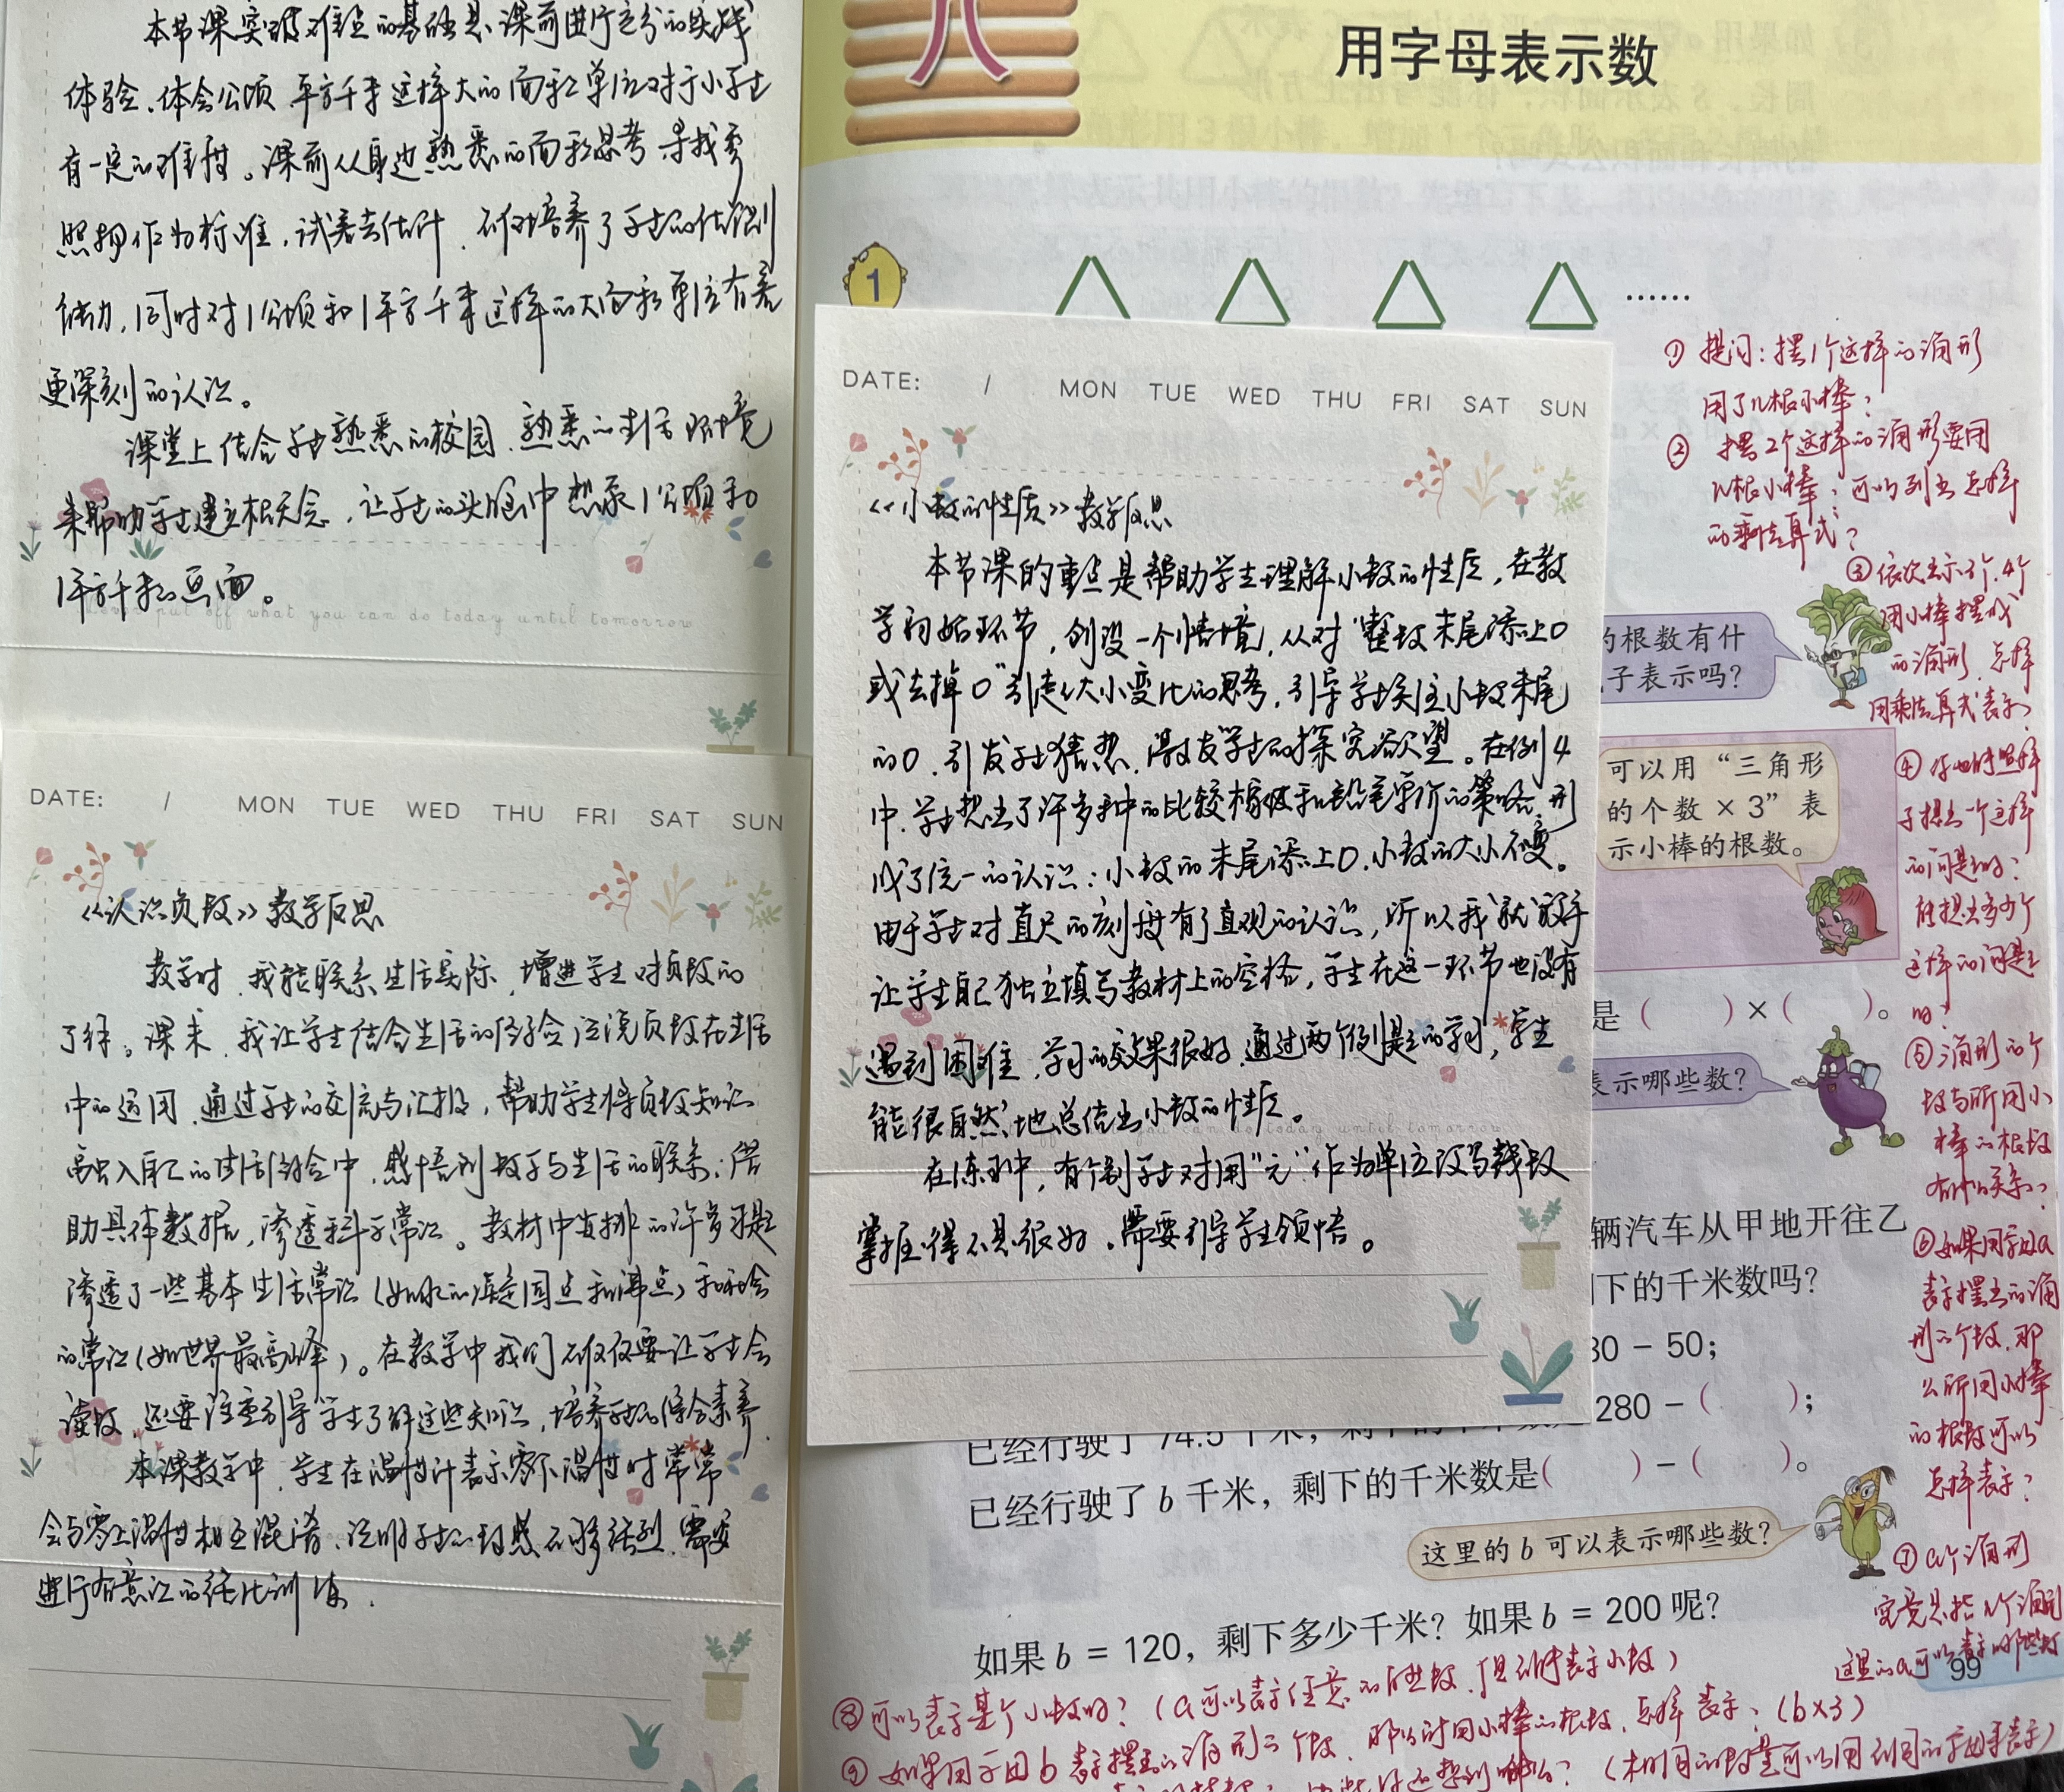 本节课突破难点的基础是课前进行充分的实践
体验、体会公顷、平方千米这样大的面积单位对于小学生
有一定的难度。课前从身边熟悉的面积思考寻找参
照物作为标准，试着去估计，不仅培养了学生的估测
能力，同时对1公顷和1平方千米这样的大面积单位有着
更深刻的认识。
课堂上结合学生熟悉的校园、熟悉的生活环境
来帮助学生建立概念，让学生的头脑中想象1公顷和
1平方千米的画面。
put off what you can do today until tomorrow
DATE: / MON TUE WED THU FRI SAT SUN
《认识负数》教学反思
教学时，我能联系生活实际，增进学生对负数的
了解。课末，我让学生结合生活的经验说说负数在生活
中的运用，通过学生的交流与汇报，帮助学生将负数知识
融入自己的生活经验中，感悟到数学与生活的联系；借
助具体数据，渗透科学常识。教材中安排的许多习题
渗透了一些基本生活常识（如水的凝固点和沸点）和社会
的常识（如世界最高峰）。在教学中我们不仅仅要让学生会
读数，还要注重引导学生了解这些知识，培养学生的综合素养。
本课教学中，学生在温度计表示零下温度时常常
会与零上温度相互混淆，说明学生的数感不够强烈，需要
进行有意识的强化训练。
DATE: / MON TUE WED THU FRI SAT SUN
《小数的性质》教学反思
本节课的重点是帮助学生理解小数的性质，在教
学初始环节，创设一个情境，从对“整数末尾添上0
或去掉0”引起大小变化的思考，引导学生关注小数末尾
的0，引发学生猜想，激发学生的探究欲望。在例4
中，学生想出了许多种中的比较橡皮和铅笔单价的策略，形
成了统一的认识：小数的末尾添上0，小数的大小不变。
由于学生对直尺的刻度有了直观的认识，所以我就放手
让学生自己独立填写教材上的空格，学生在这一环节也没有
遇到困难，学习的效果很好，通过两个例题的学习，学生
能很自然地总结出小数的性质。
在练习中，有个别学生对用“元”作为单位改写钱数
掌握得不是很好，需要引导学生领悟。
八
用字母表示数
1
……
①提问：摆1个这样的三角形
用了几根小棒？
②摆2个这样的三角形要用
几根小棒？可以列出怎样
的乘法算式？
③依次出示3个、4个
用小棒摆成
的三角形，怎样
用乘法算式表示？
的根数有什
子表示吗？
可以用“三角形
的个数×3”表
示小棒的根数。
④你也能照样
子提出一个这样
的问题吗？
能提出多少个
这样的问题
吗？
是（ ）×（ ）。
表示哪些数？
⑤三角形的个
数与所用小
棒的根数
有什么关系？
辆汽车从甲地开往乙
下的千米数吗？
80－50；
280－（ ）；
⑥如果用字母a
表示摆出的三角
形的个数，那
么所用小棒
的根数可以
怎样表示？
已经行驶了 74.5 千米，剩下的千米数是
已经行驶了 b 千米，剩下的千米数是（ ）－（ ）。
这里的 b 可以表示哪些数？
⑦a个三角形
究竟是指几个三角形
这里的a可以表示哪些数
如果 b = 120，剩下多少千米？如果 b = 200 呢？
99
⑧可以表示某个小数吗？（a可以表示任意的自然数，但不能表示小数）
⑨如果用字母b表示摆出的三角形的个数，那么所用小棒的根数，怎样表示？（b×3）
（相同的数量可以用不同的字母来表示）